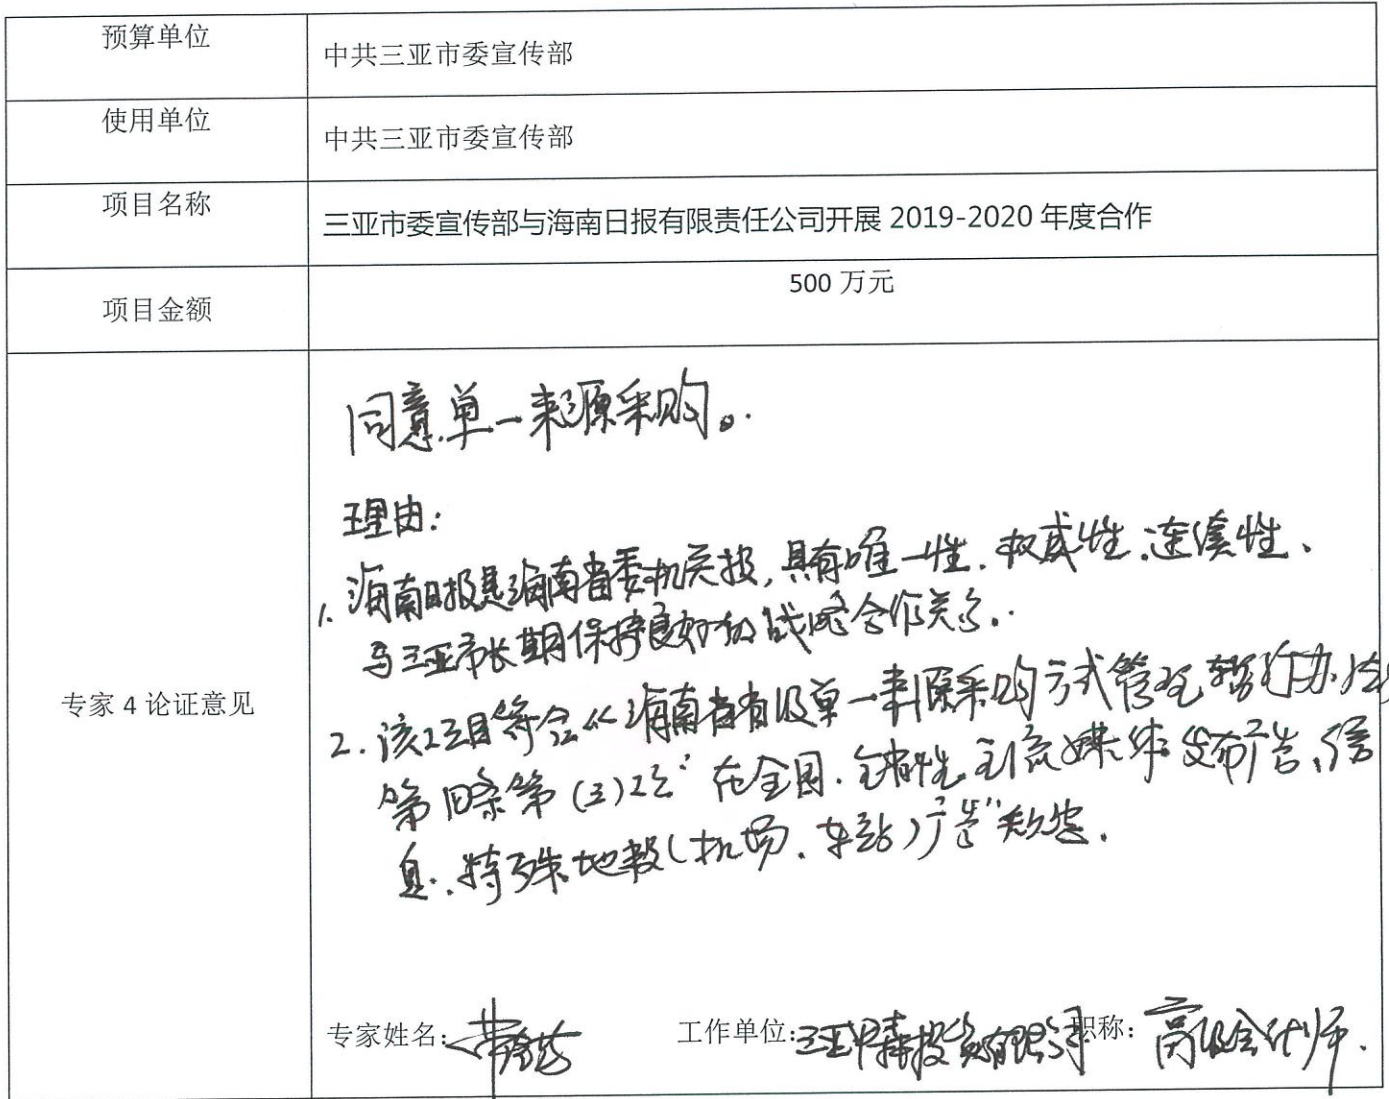 预算单位
中共三亚市委宣传部
使用单位
中共三亚市委宣传部
项目名称
三亚市委宣传部与海南日报有限责任公司开展 2019-2020 年度合作
项目金额
500 万元
专家 4 论证意见
同意单一来源采购。
理由:
1. 海南日报是海南省委机关报,具有唯一性、权威性、连续性、
与三亚市长期保持良好的战略合作关系.
2. 该项目符合《海南省省级单一来源采购方式管理暂行办法
第四条第(三)项“在全国、全省性主流媒体发布广告、信
息、特殊地段(机场、车站)广告”
专家姓名:
工作单位:三亚中森投资有限公司
职称:高级会计师.